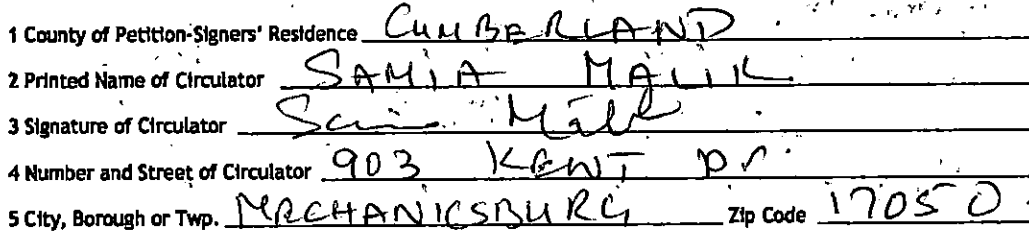 1 County of Petition-Signers' Residence CUMBERLAND
2 Printed Name of Circulator SAMIA MALIK
3 Signature of Circulator Samia Malik
4 Number and Street of Circulator 903 KENT Dr.
5 City, Borough or Twp. MECHANICSBURG Zip Code 17050